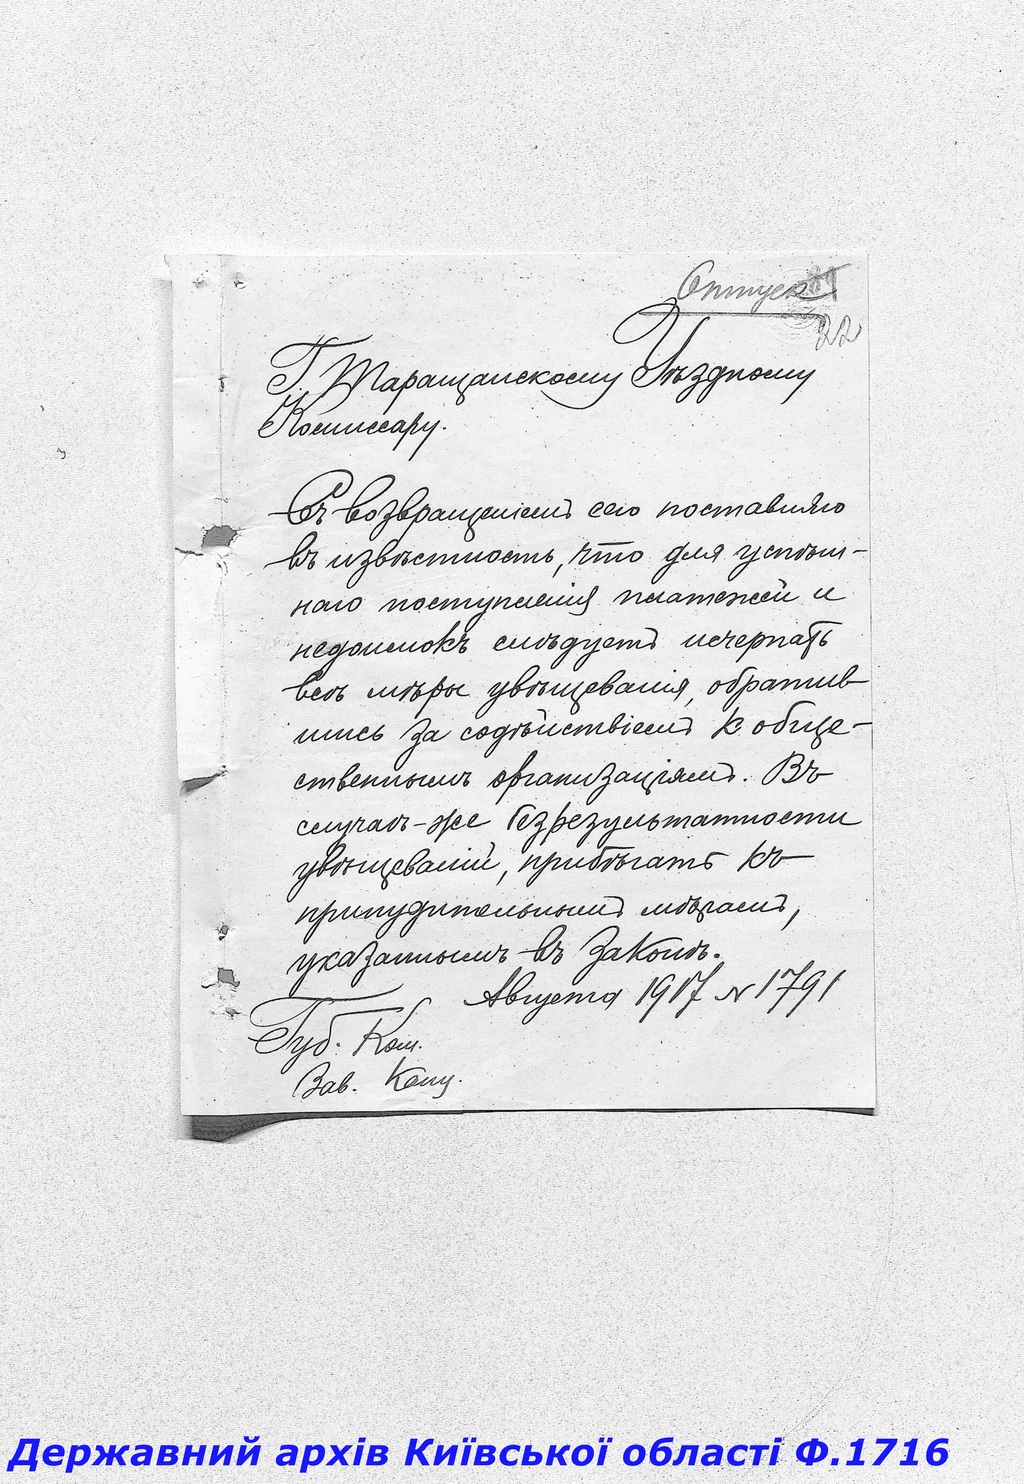 Отпускъ
22
Г. Таращанскому Уѣздному
Комиссару.
Съ возвращеніемъ сего поставляю
въ извѣстность, что для успѣш-
наго поступленія платежей и
недоимокъ слѣдуетъ исчерпать
всѣ мѣры увѣщеванія, обратив-
шись за содѣйствіемъ к обще-
ственнымъ организаціямъ. Въ
случаѣ-же безрезультатности
увѣщеваній, прибѣгать къ
принудительнымъ мѣрамъ,
указаннымъ въ законѣ.
Августа 1917 N 1791
Губ. Ком.
Зав. Канц.
Державний архів Київської області Ф.1716